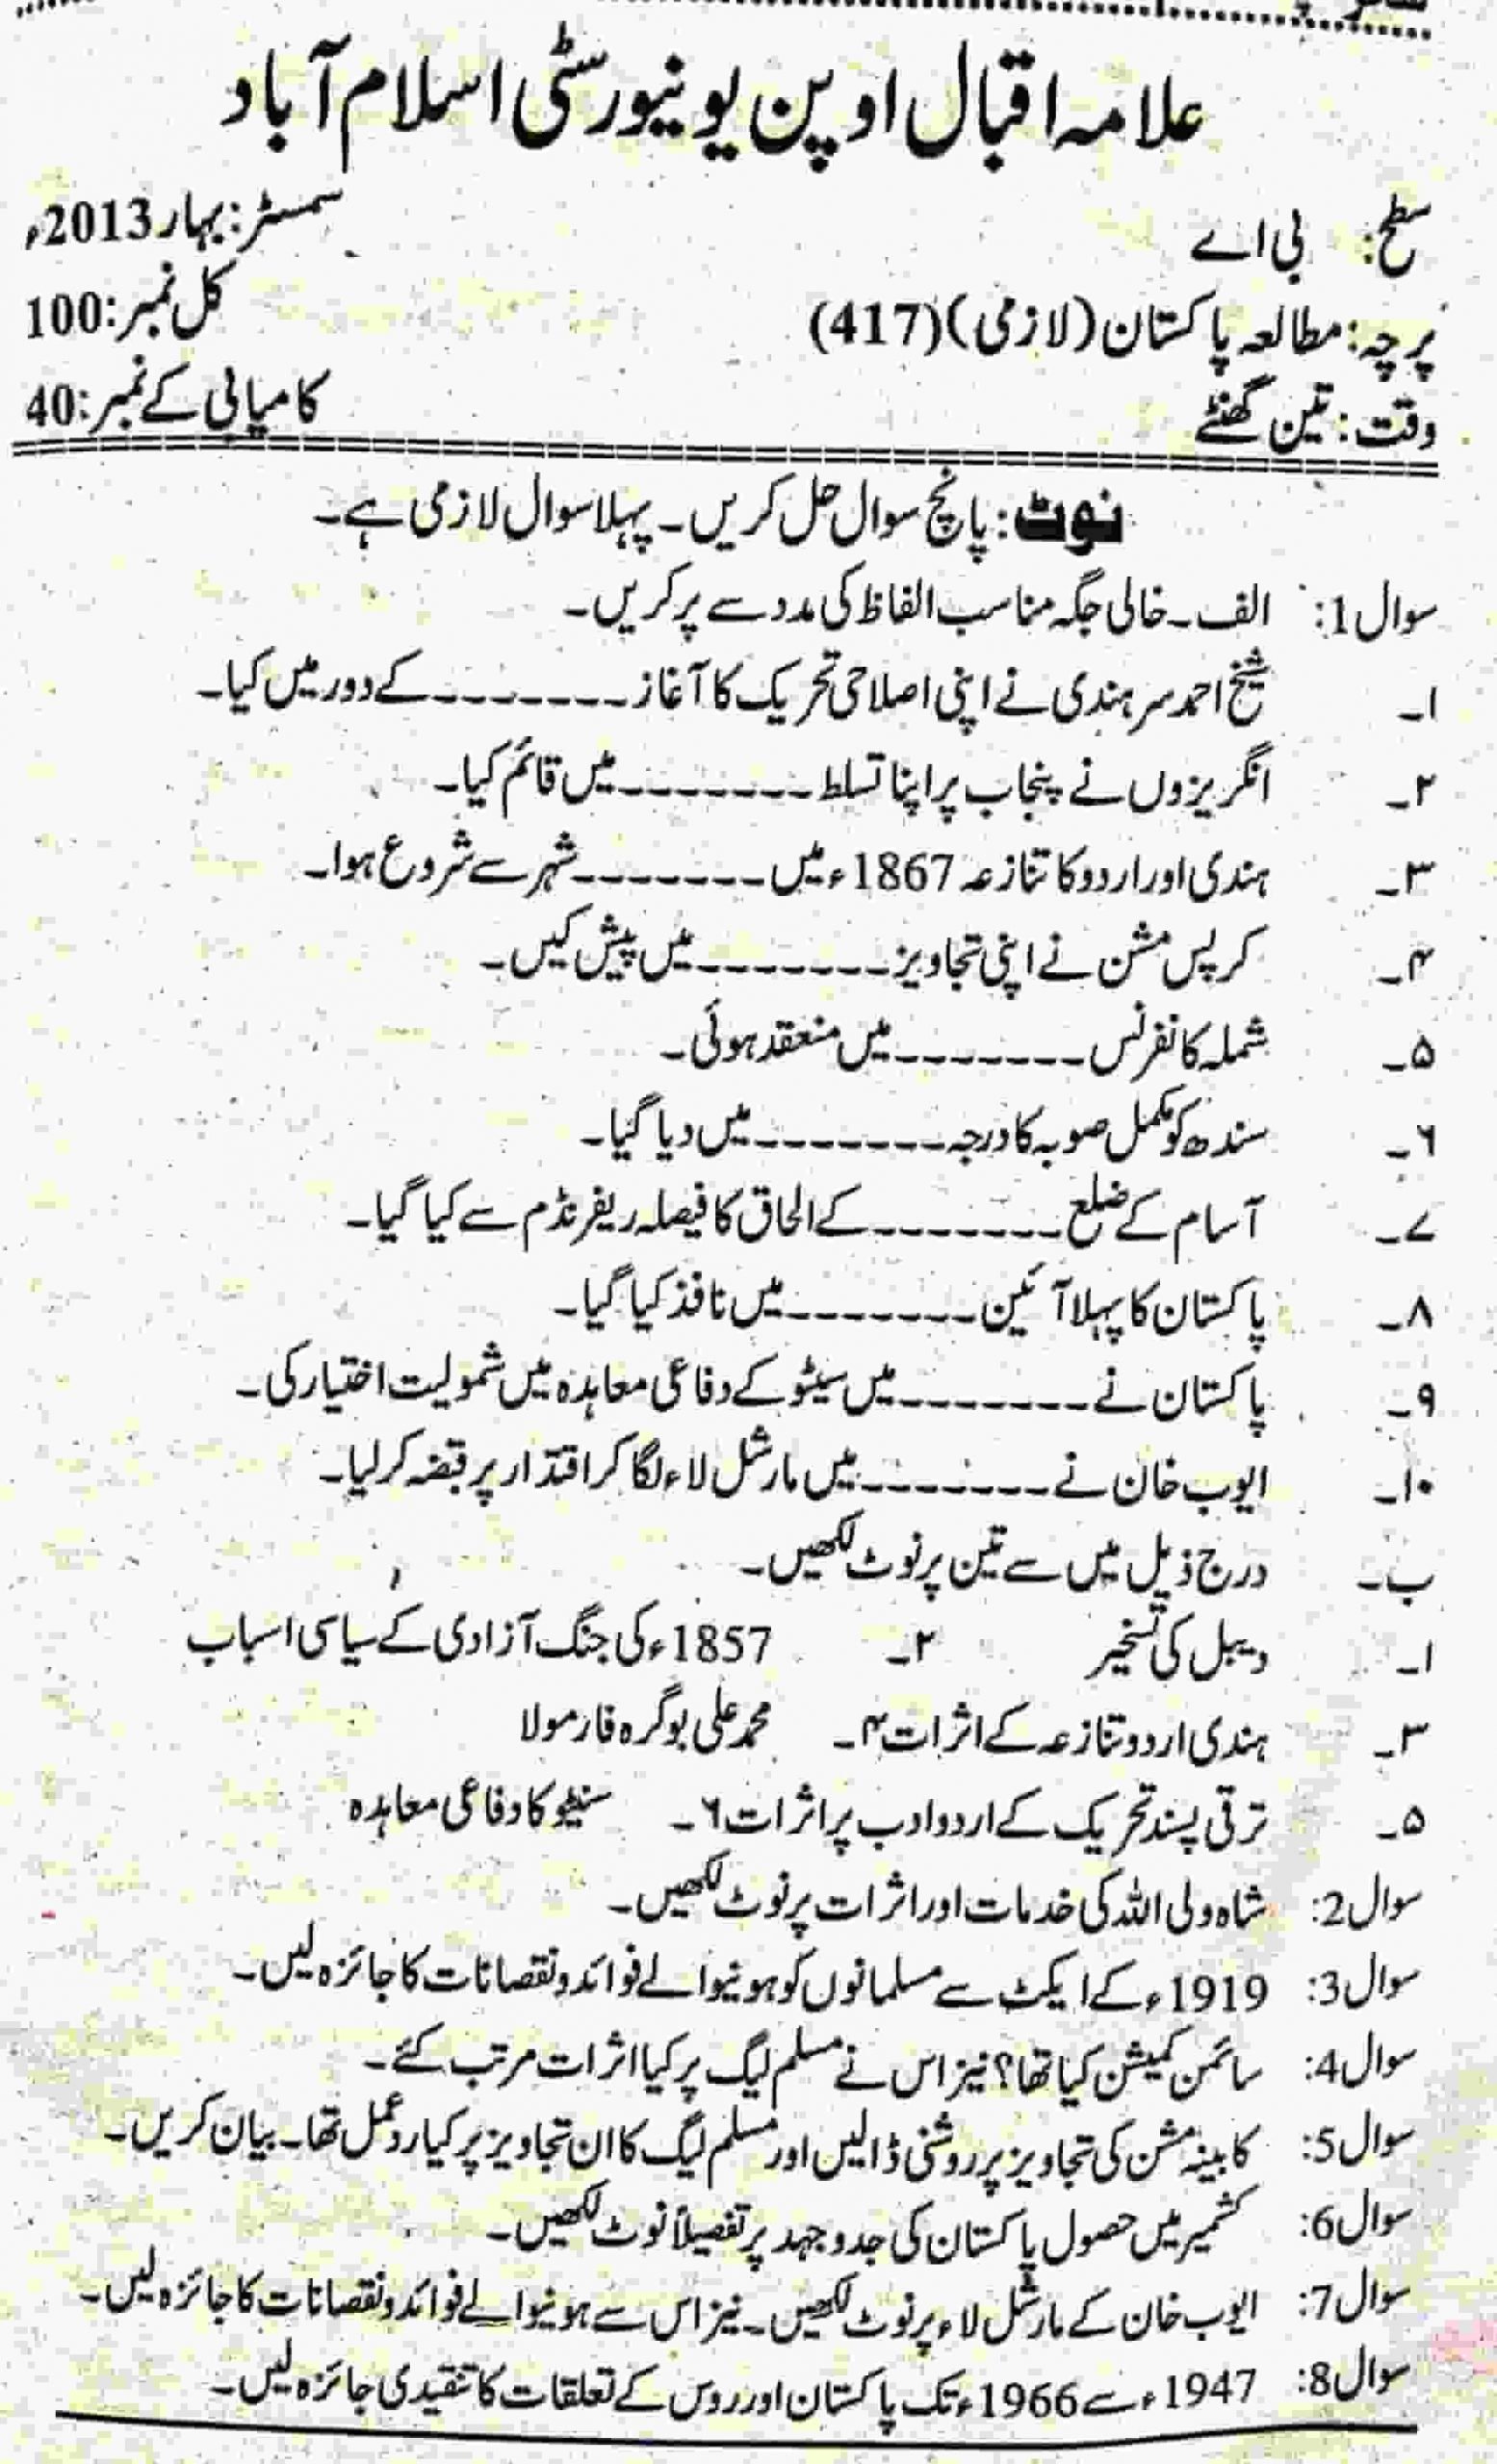 علامہ اقبال اوپن یونیورسٹی اسلام آباد
سطح: بی اے سمسٹر: بہار 2013ء
پرچہ: مطالعہ پاکستان (لازمی) (417) کل نمبر: 100
وقت: تین گھنٹے کامیابی کے نمبر: 40
نوٹ: پانچ سوال حل کریں۔ پہلا سوال لازمی ہے۔
سوال 1: الف۔ خالی جگہ مناسب الفاظ کی مدد سے پر کریں۔
۱۔ شیخ احمد سرہندی نے اپنی اصلاحی تحریک کا آغاز -------- کے دور میں کیا۔
۲۔ انگریزوں نے پنجاب پر اپنا تسلط -------- میں قائم کیا۔
۳۔ ہندی اور اردو کا تنازعہ 1867ء میں -------- شہر سے شروع ہوا۔
۴۔ کرپس مشن نے اپنی تجاویز -------- میں پیش کیں۔
۵۔ شملہ کانفرنس -------- میں منعقد ہوئی۔
۶۔ سندھ کو مکمل صوبہ کا درجہ -------- میں دیا گیا۔
۷۔ آسام کے ضلع -------- کے الحاق کا فیصلہ ریفرنڈم سے کیا گیا۔
۸۔ پاکستان کا پہلا آئین -------- میں نافذ کیا گیا۔
۹۔ پاکستان نے -------- میں سیٹو کے دفاعی معاہدہ میں شمولیت اختیار کی۔
۱۰۔ ایوب خان نے -------- میں مارشل لاء لگا کر اقتدار پر قبضہ کر لیا۔
ب۔ درج ذیل میں سے تین پر نوٹ لکھیں۔
۱۔ دیبل کی تسخیر ۲۔ 1857ء کی جنگ آزادی کے سیاسی اسباب
۳۔ ہندی اردو تنازعہ کے اثرات ۴۔ محمد علی بوگرہ فارمولا
۵۔ ترقی پسند تحریک کے اردو ادب پر اثرات ۶۔ سنیٹو کا دفاعی معاہدہ
سوال 2: شاہ ولی اللہ کی خدمات اور اثرات پر نوٹ لکھیں۔
سوال 3: 1919ء کے ایکٹ سے مسلمانوں کو ہونیوالے فوائد و نقصانات کا جائزہ لیں۔
سوال 4: سائمن کمیشن کیا تھا؟ نیز اس نے مسلم لیگ پر کیا اثرات مرتب کئے۔
سوال 5: کابینہ مشن کی تجاویز پر روشنی ڈالیں اور مسلم لیگ کا ان تجاویز پر کیا ردعمل تھا۔ بیان کریں۔
سوال 6: کشمیر میں حصول پاکستان کی جدوجہد پر تفصیلاً نوٹ لکھیں۔
سوال 7: ایوب خان کے مارشل لاء پر نوٹ لکھیں۔ نیز اس سے ہونیوالے فوائد و نقصانات کا جائزہ لیں۔
سوال 8: 1947ء سے 1966ء تک پاکستان اور روس کے تعلقات کا تنقیدی جائزہ لیں۔